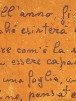 ell'anno fi
che esisterà
ve com'è la s
essere capac
una foglia, un
ne, pensate